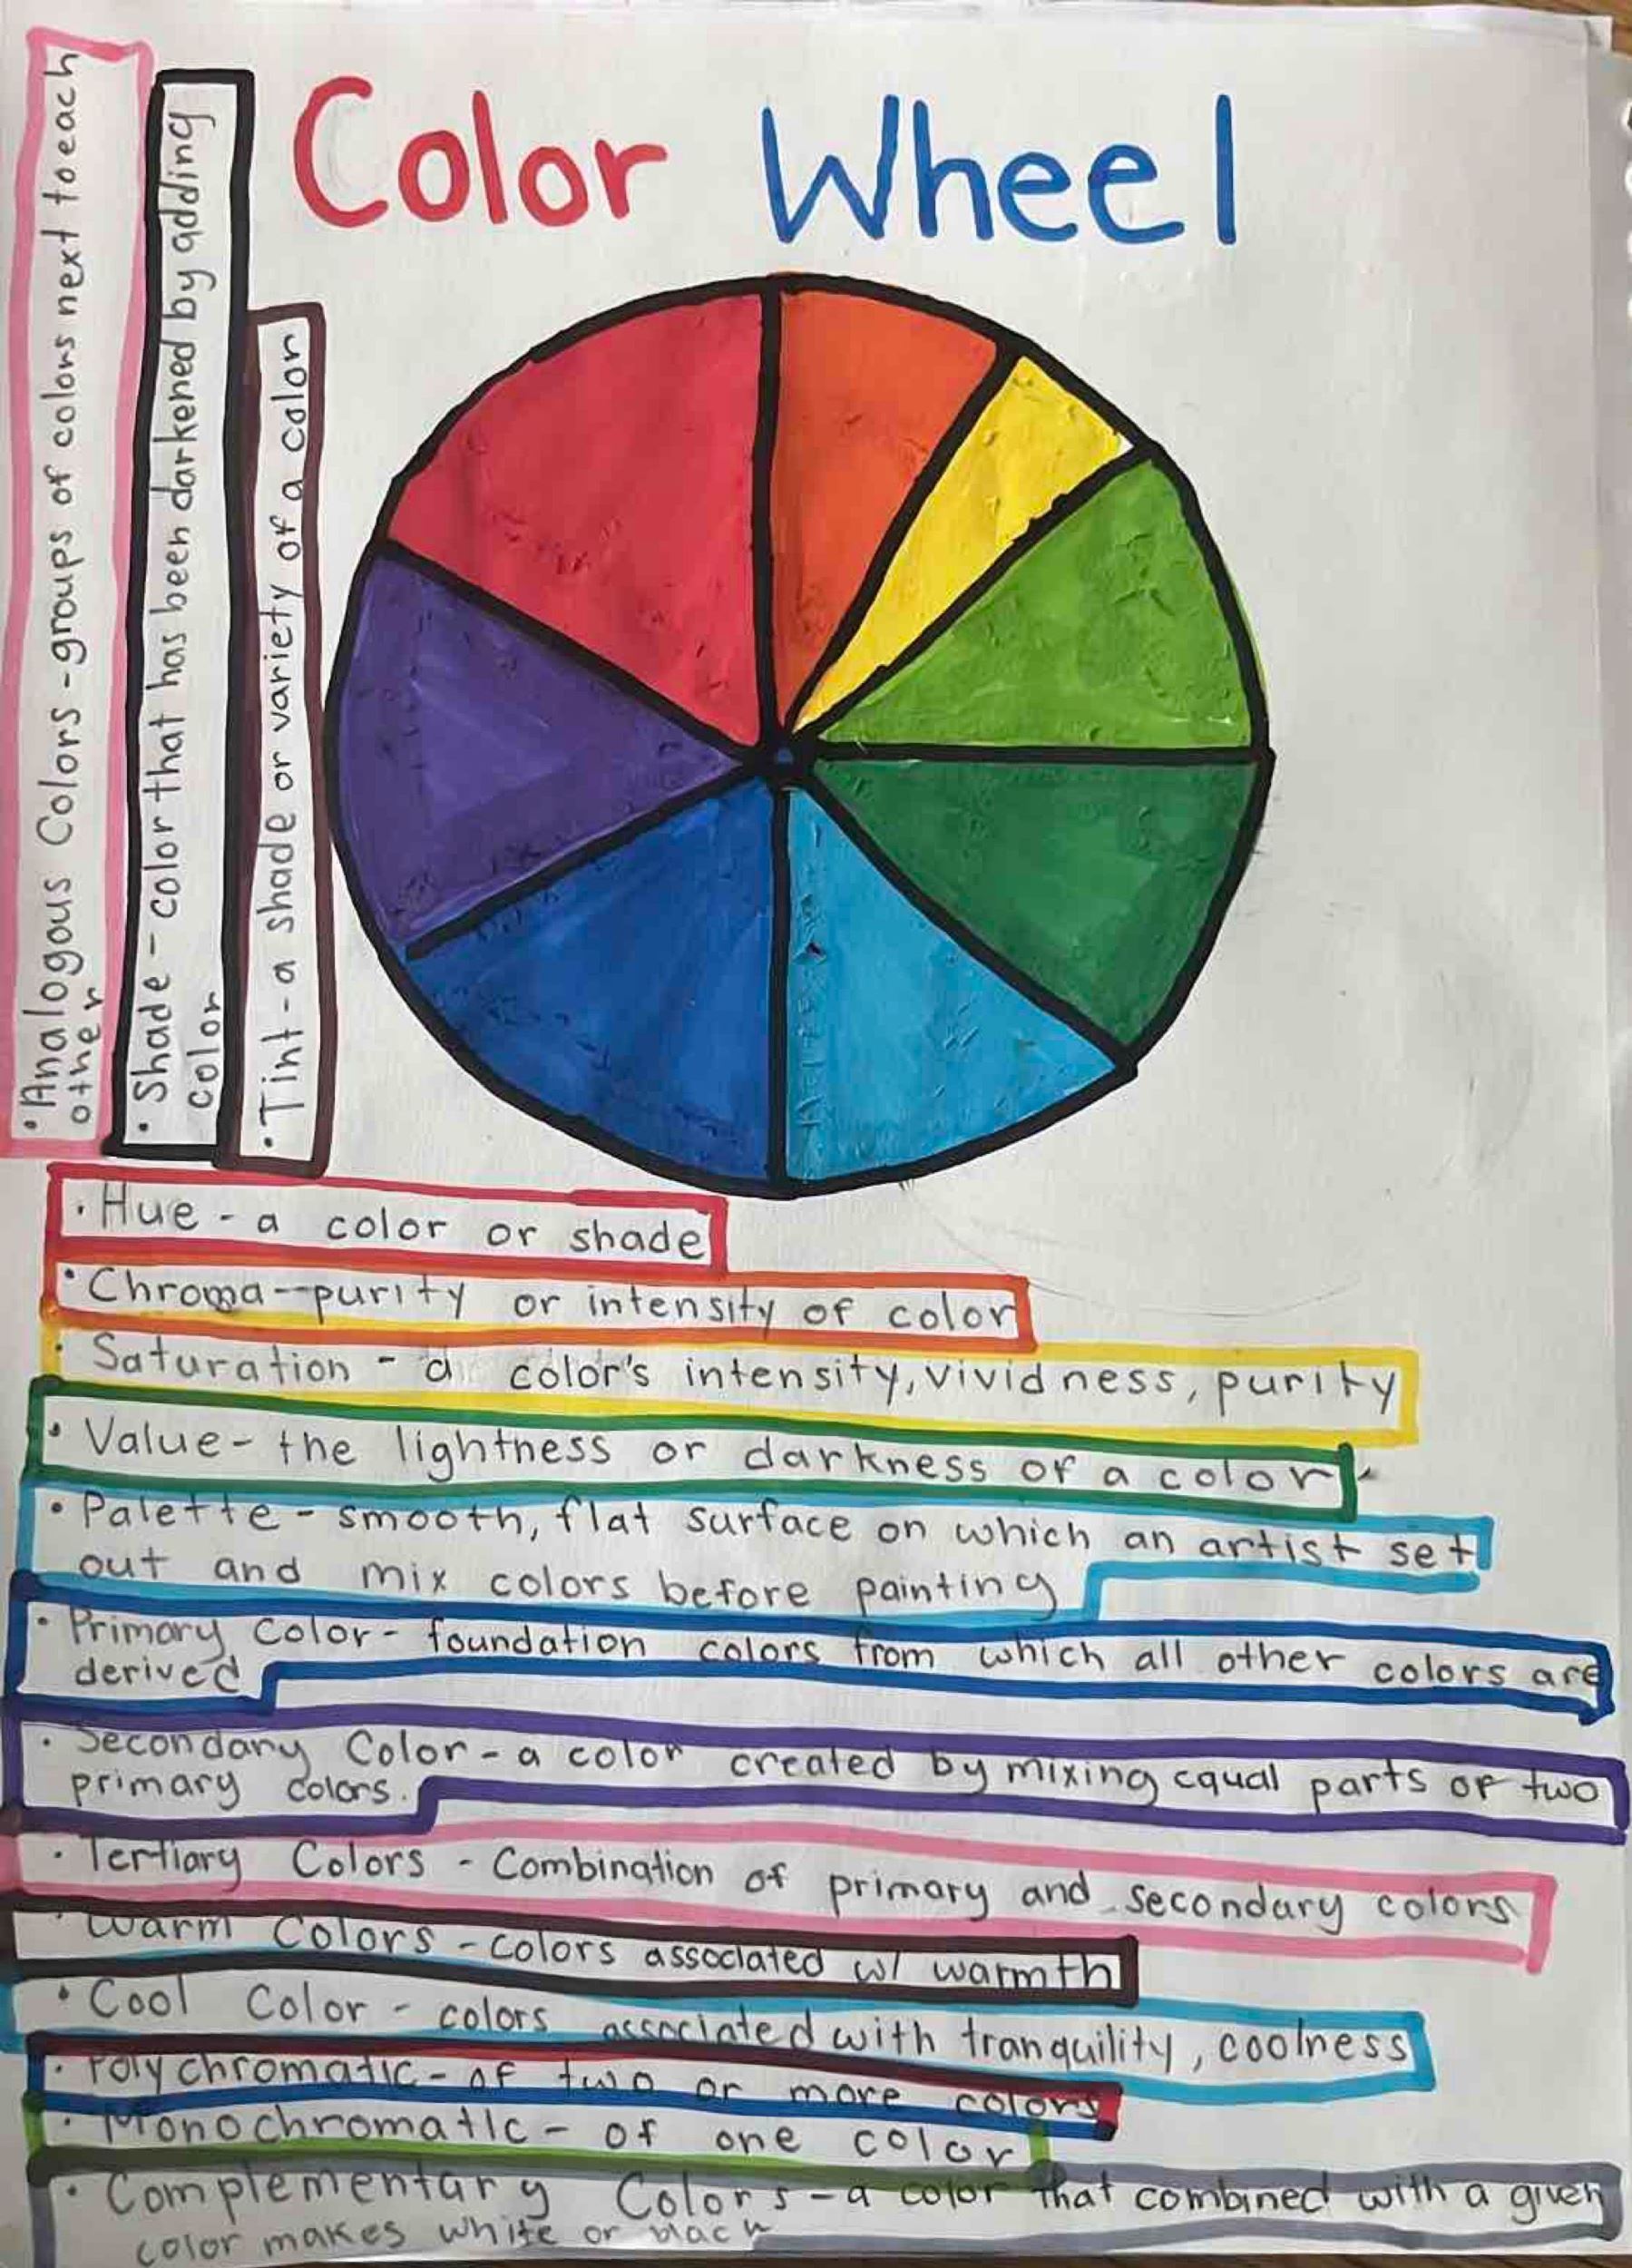 Color Wheel
• Analogous Colors - groups of colors next to each
other
• Shade - color that has been darkened by adding
color
• Tint - a shade or variety of a color
• Hue - a color or shade
• Chroma - purity or intensity of color
• Saturation - a color's intensity, vividness, purity
• Value - the lightness or darkness of a color
• Palette - smooth, flat surface on which an artist set
out and mix colors before painting
• Primary Color - foundation colors from which all other colors are
derived
• Secondary Color - a color created by mixing equal parts of two
primary colors.
• Tertiary Colors - Combination of primary and secondary colors
• Warm Colors - colors associated w/ warmth
• Cool Color - colors associated with tranquility, coolness
• Polychromatic - of two or more colors
• Monochromatic - of one color
• Complementary Colors - a color that combined with a given
color makes white or black